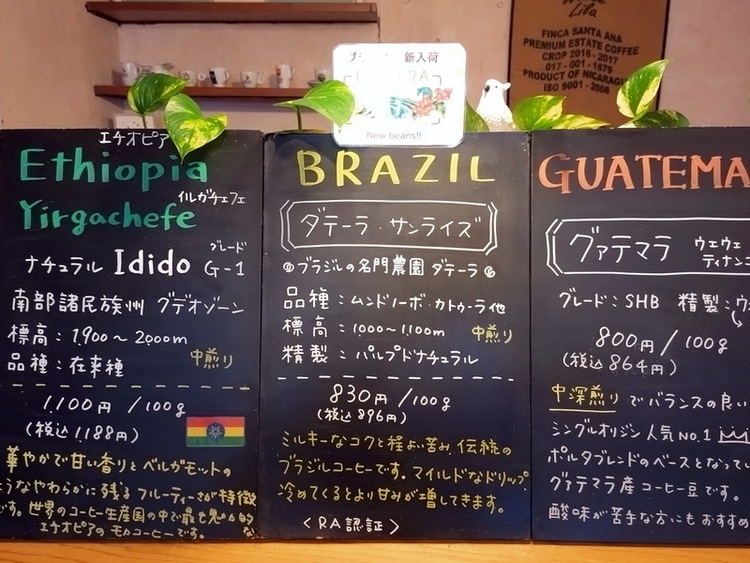 Lila
FINCA SANTA ANA
PREMIUM ESTATE COFFEE
CROP 2016 - 2017
017 - 001 - 1679
PRODUCT OF NICARAGU
ISO 9001 - 2008
新入荷
New beans!!
エチオピア
Ethiopia
イルガチェフェ
Yirgachefe
グレード
ナチュラル Idido G-1
南部諸民族州 グデオゾーン
標高：1,900〜2000m
品種：在来種
中煎り
1,100円/100g
(税込1,188円)
華やかで甘い香りとベルガモットの
ようなやわらかに残るフルーティーさが特徴
です。世界のコーヒー生産国の中で最も魅力的な
エチオピアのモカコーヒーです。
BRAZIL
ダテーラ・サンライズ
ブラジルの名門農園 ダテーラ
品種：ムンドノーボ・カトゥーラ他
標高：1000〜1,100m
中煎り
精製：パルプドナチュラル
830円/100g
(税込896円)
ミルキーなコクと程よい苦み、伝統の
ブラジルコーヒーです。マイルドなドリップ
冷めてくるとより甘みが増してきます。
＜RA認証＞
GUATEMA
グァテマラ ウエウエ
ティナンゴ
グレード：SHB 精製：ウ
800円/100g
(税込864円)
中深煎りでバランスの良い
シングルオリジン人気No.1
ポルタブレンドのベースとなって
グァテマラ産コーヒー豆です。
酸味が苦手な方にもおすすめ